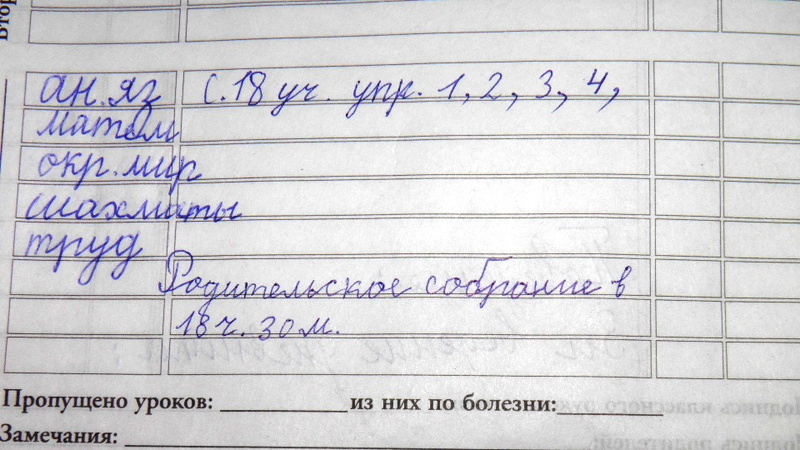 ан.яз с.18 уч. упр. 1, 2, 3, 4,
матем
окр.мир
шахматы
труд
Родительское собрание в
18 ч. 30 м.
Пропущено уроков: ____________ из них по болезни: __________
Замечания: ____________